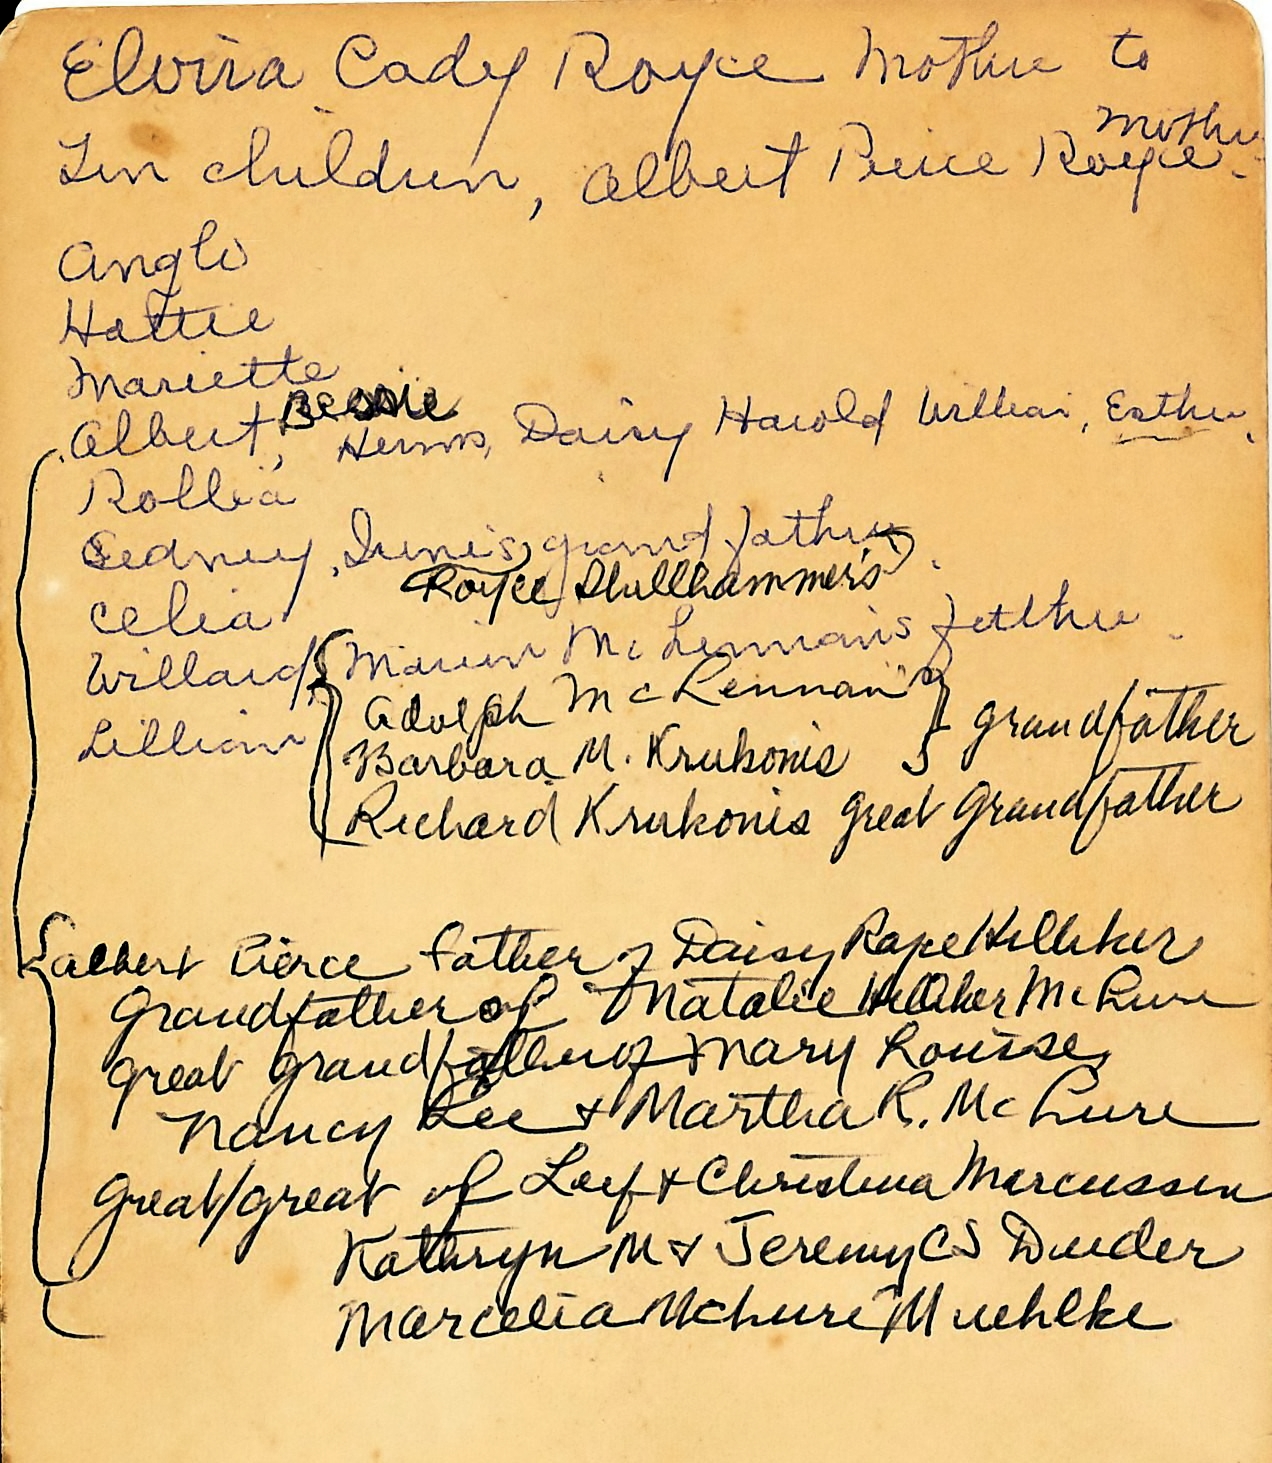 Elvira Cady Royce Mother to
Ten children, Albert Peirce Royce mother.
Anglo
Hattie
Mariette
Albert, Bessie Herms, Daisy Harold William, Esther.
Rollia
Sedney, Irenis, grand father.
(Royce Shellhammer's)
Celia
Willard, Marion McLennan's father.
Adolph McLennan } grandfather
Lillian
Barbara M. Krukonis
Richard Krukonis great grandfather
Albert Pierce father of Daisy Royce Helliker
Grandfather of Natalie Helliker McLure
great grandfather of Mary Louise,
Nancy Lee & Martha R. McLure
Great/great of Leif & Christina Marcussen
Kathryn M & Jeremy CS Duder
Marcelia McLure Muehlke